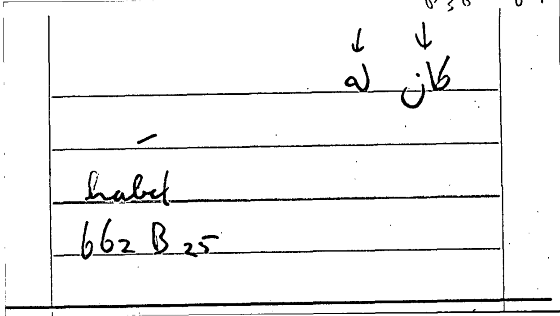 كان له
habet
662 B 25